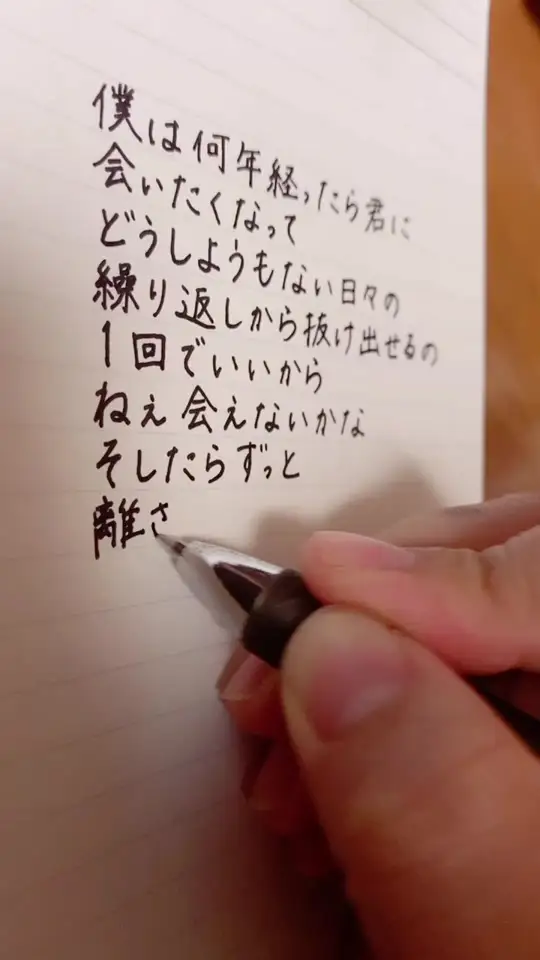 僕は何年経ったら君に
会いたくなって
どうしようもない日々の
繰り返しから抜け出せるの
1回でいいから
ねぇ会えないかな
そしたらずっと
離さ